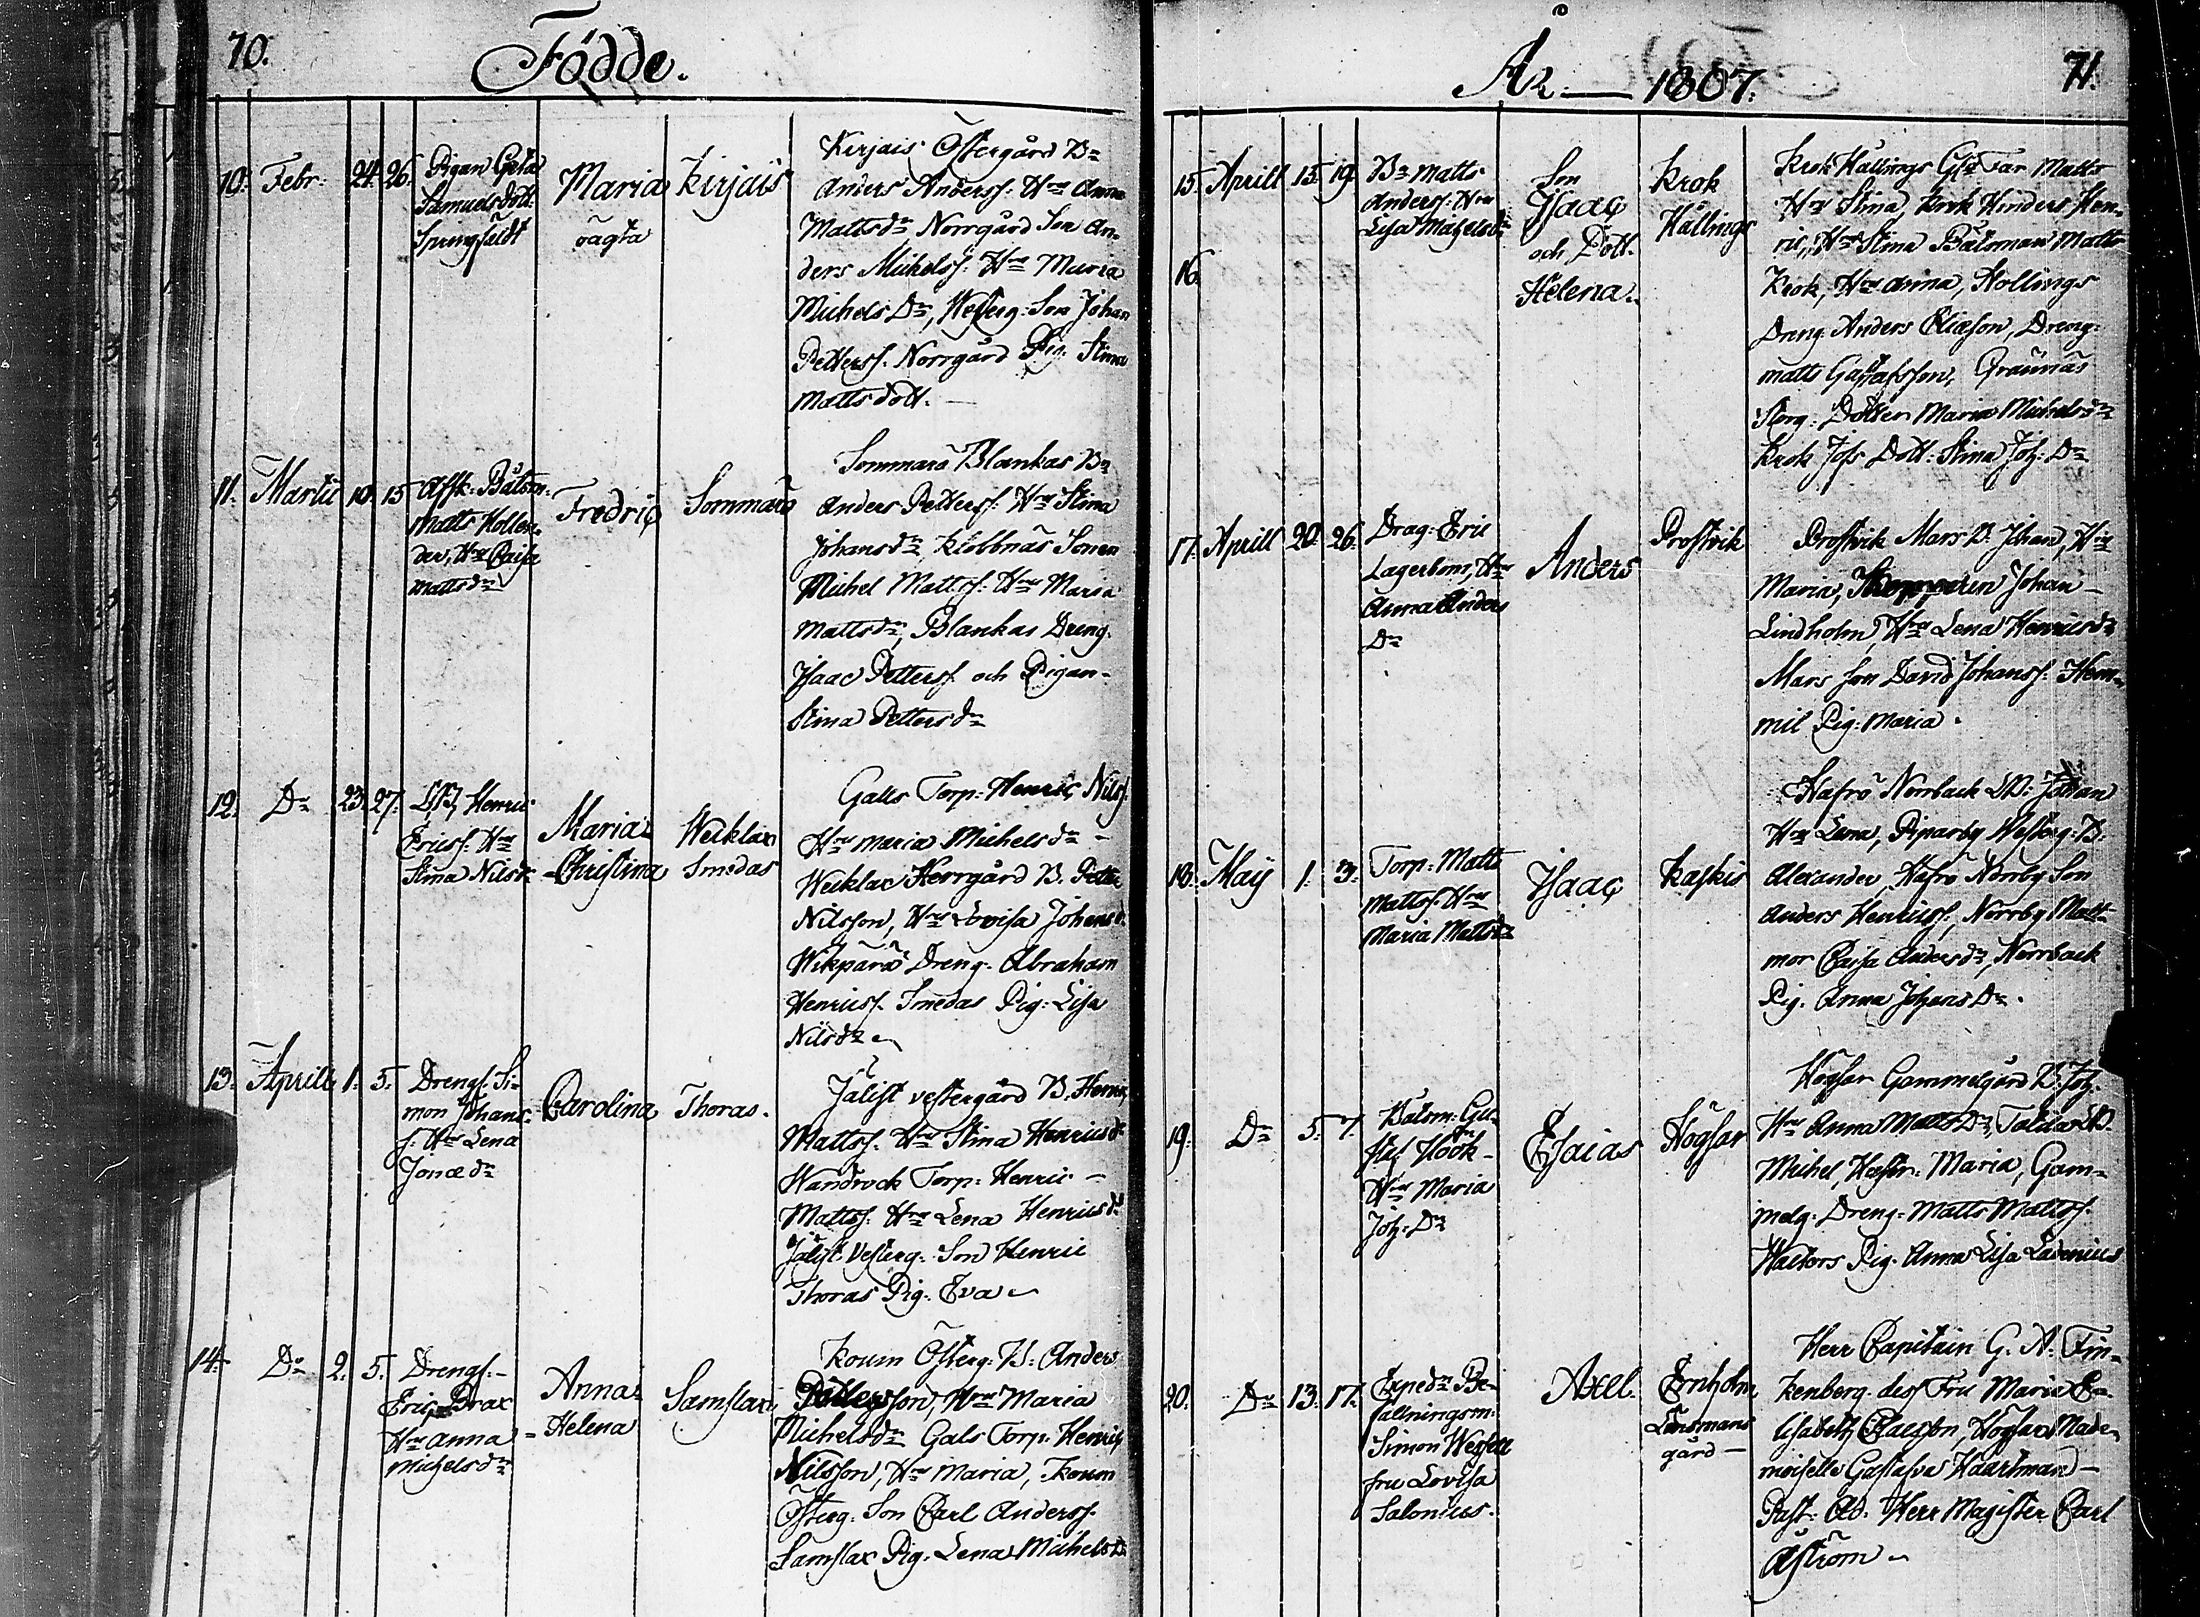 70.
Födde.
10. Febr: 24. 26.
Pigan Greta
Samuels dott.
Maria
oägta
Kirjais
Kirjais Östergård Bn
Anders Anderss. Hru Anna
Matts dr Norrgård Son An-
ders Mickelss: Hru Maria
Michels Dr, Westerg: Son Johan
Petterss. Norrgård Pig. Stina
Matts dott. —
11. Martii 10. 15
Afsk: Båtsm.
Matts Hollen-
der, Hru Caisa
Mattsdr
Fredric
Sommarö
Sommarö Blankas Bn
Anders Petterss. Hru Stina
Johansdr, Klobbnäs Sonen
Michel Mattss. Hru Maria
Mattsdr, Blankas Dreng.
Isaac Petterss. och Pigan-
Stina Pettersdr
12. Do 23. 27.
Henric
Ericss. Hru
Stina Nilsdr
Maria
Christina
Wecklax
Smedas
Galls Torp: Henric Nilss.
Hru Maria Michelsdr -
Wecklax Herrgård B. Petter
Nilsson, Hru Lovisa Johansd.
Wikparö Dreng. Abraham
Henricss. Smedas Pig: Lisa
Nilsdr
13. Aprill 1. 5.
Drengs. Si-
mon Johans-
s. Hru Lena
Jonædr
Carolina
Thoras.
Jälist vestergård B. Henric
Mattss. Hru Stina Henricsd.
Wandrock Torp: Henric -
Mattss. Hru Lena Henricsdr
Jälist Vesterg: Son Henric
Thoras Pig. Eva
14. Do 2. 5.
Drengs. -
Eric Brax
Hru Anna
Michelsdr
Anna
- Helena
Samslax
Koum Österg: B: Anders
Pettersson, Hru Maria
Michelsdr Gals Torp: Henric
Nilsson, Hru Maria, Koum
Österg: Son Carl Anderss.
Samslax Pig. Lena Michelsdr
År — 1807.
71.
15. Aprill 15. 19.
Bn Matts
Anderss. Hru
Lisa Michelsdr
Son
Isaac
och Dott.
Helena.
16.
Krok
Hållings
Krok Hållings Far Matts
Hru Stina, Krok Hinders Hen-
ric, Hru Stina Båtsman Matts
Krok, Hru Anna, Hollings
Dreng. Anders Eliæson, Dreng.
Matts Gustafsson, Grännäs
Storg: Dotter Maria Michelsdr
Krok Joss Dott: Stina Joh: Dr
17. Aprill 20. 26.
Drag: Eric
Lagerbom, Hru
Anna Anders
Dr
Anders
Prostvik
Prostvik Mars B. Johan, Hru
Maria, Johan -
Lindholm, Hru Lena Henricsdr
Mars Son David Johanss. Hem-
mil Pig: Maria.
18. Maij 1. 3.
Torp: Matts
Mattss. Hru
Maria Mattsdr
Isaac
Kaskis
Hafrö Norrback Johan
Hru Lena, Piparby Westerg: B.
Alexander, Hafrö Norrby Son
Anders Henricss. Norrby Matt-
mor Caisa Andersdr, Norrback
Pig. Anna Johans Dr.
19. Do 5. 7.
Båtsm: Gu-
staf Höök -
Hru Maria
Joh: Dr
Esaias
Högsar
Högsar Gammelgård B. Joh.
Hru Anna Matts Dr,
Michel, Maria, Gam-
melg: Dreng: Matts Mattss.
Waltors Pig. Anna Lisa
20. Do 13. 17.
Expedn Be-
fallningsm:
Simon
fru Lovisa
Salonius.
Axel.
Ernholm
Länsmans
gård —
Herr Capitain G. A. Fin-
kenberg dess Fru Maria E-
lisabeth, Högsar Made-
moiselle Gustafva Haartman -
Past: Ad. Herr Magister Carl
Åström